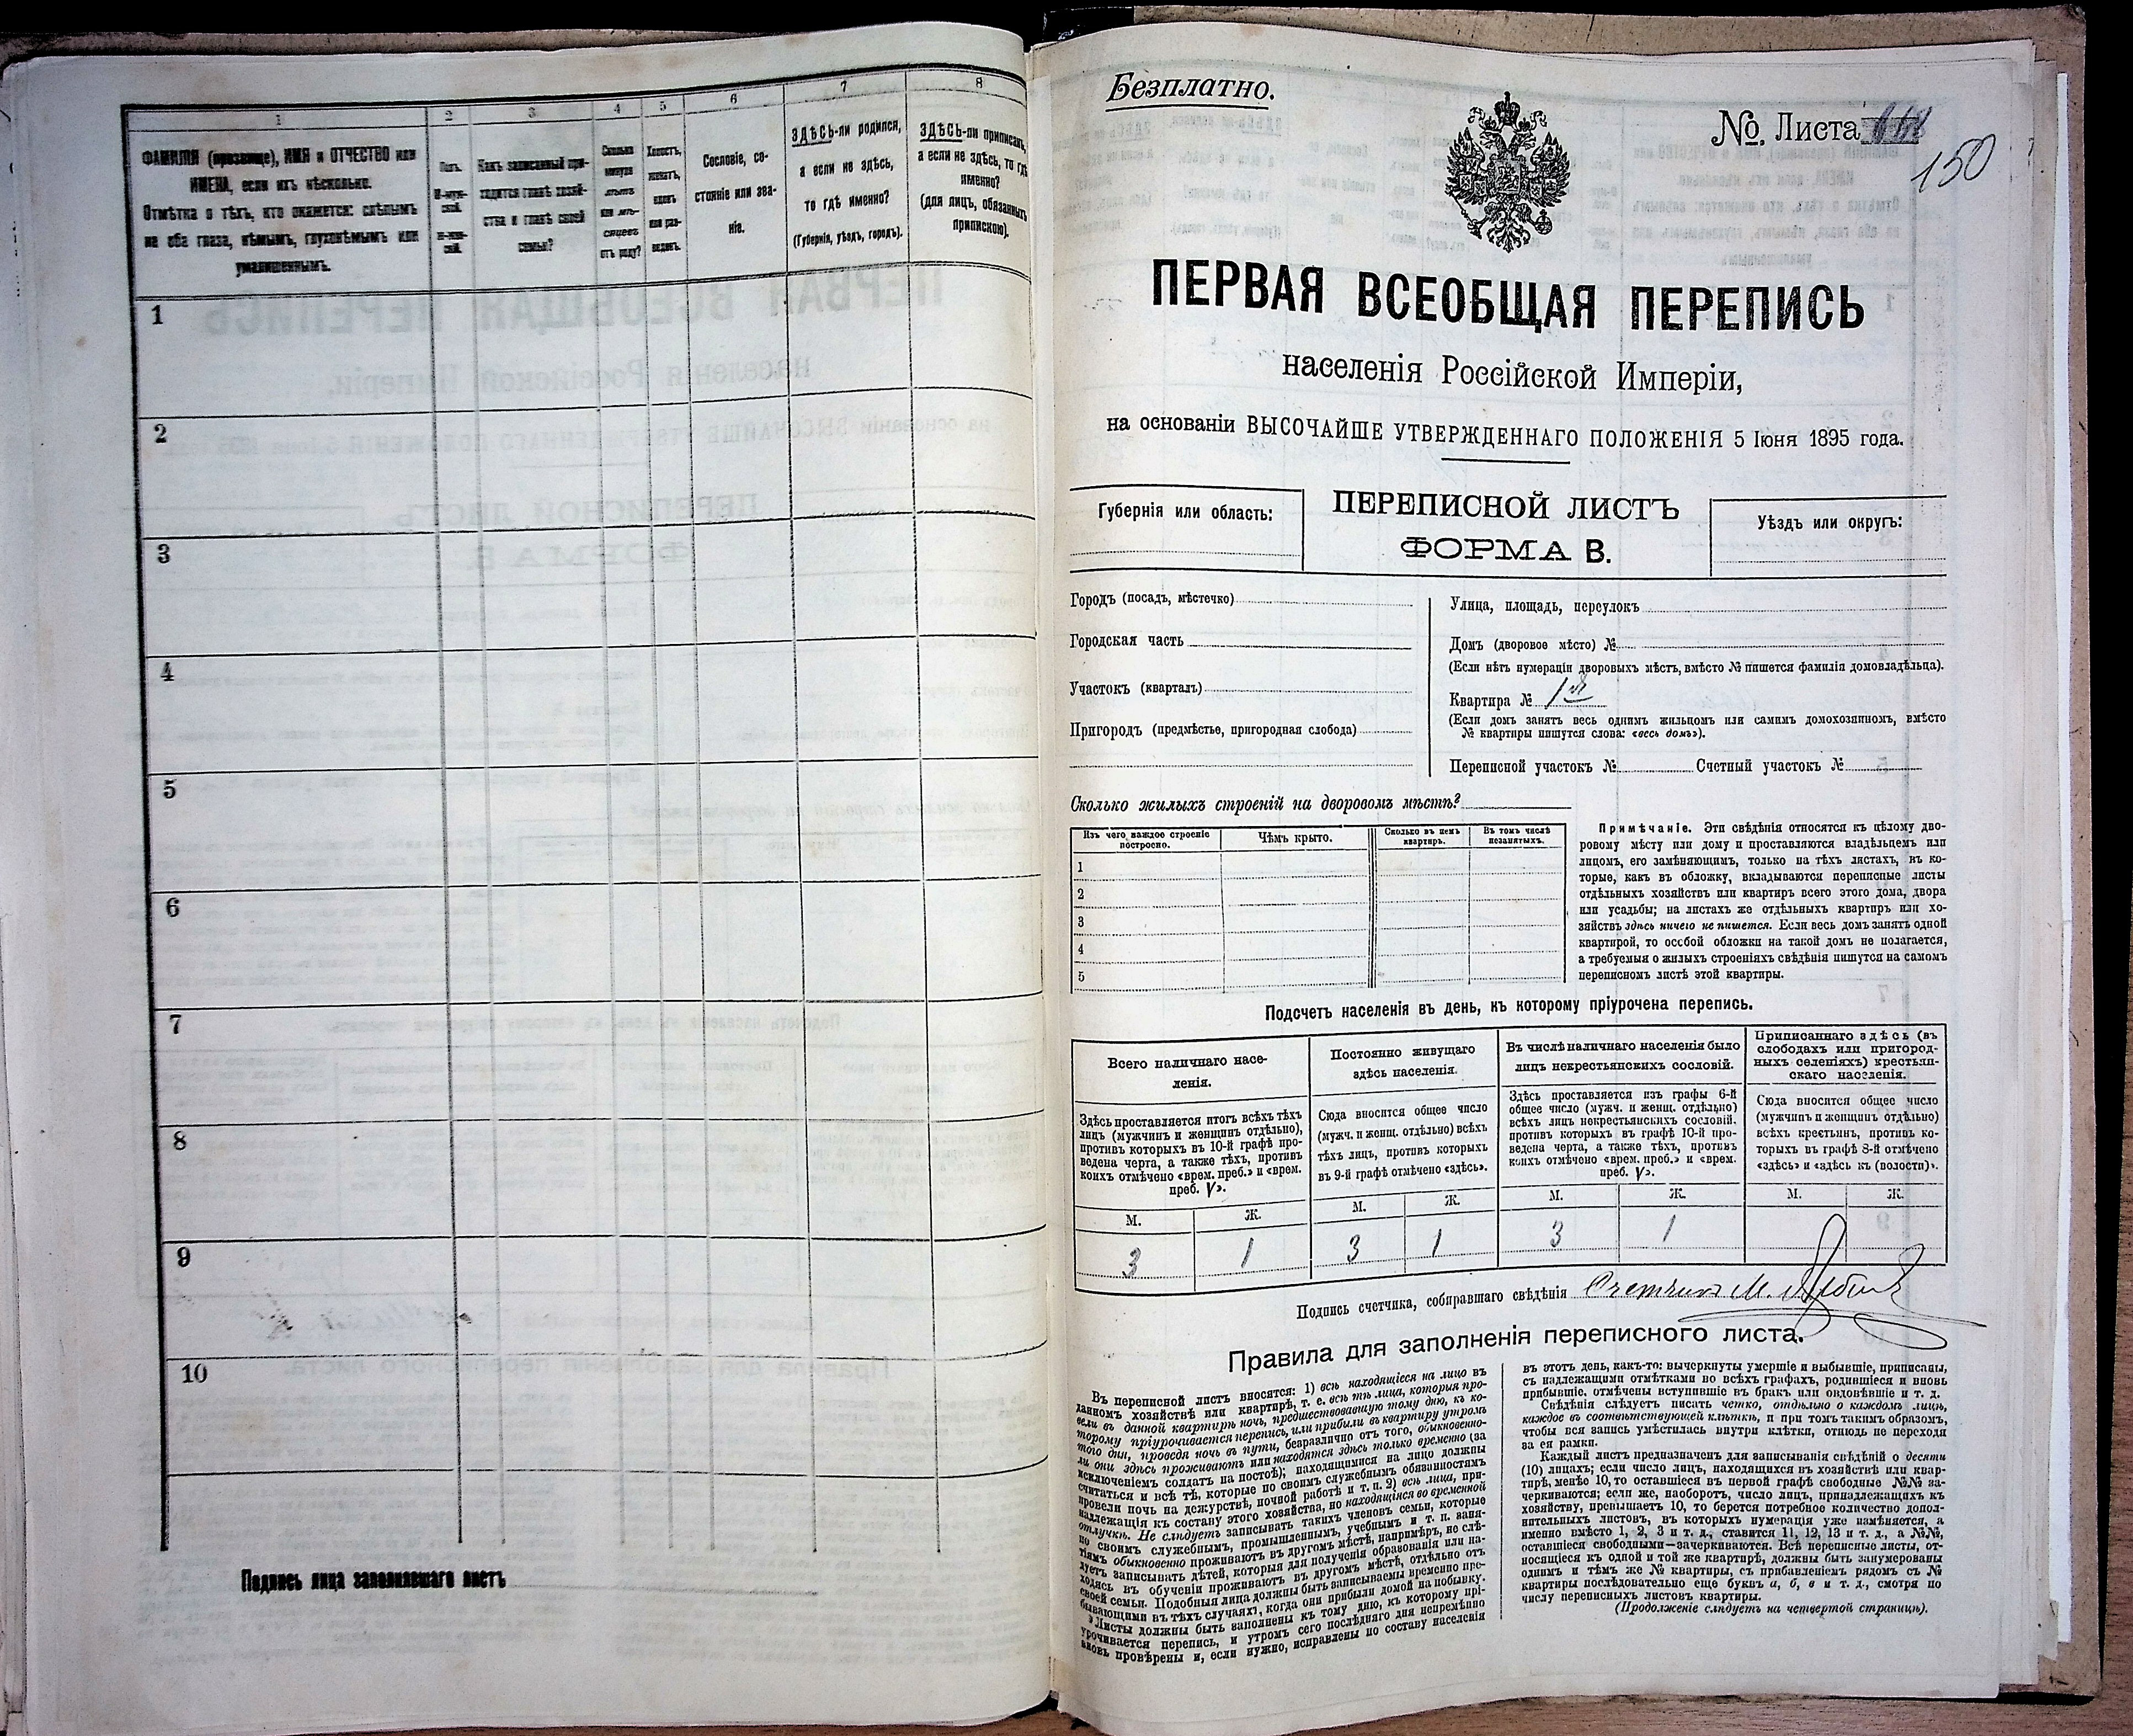 1
2
3
4
5
6
7
8
ФАМИЛІЯ (прозвище), ИМЯ и ОТЧЕСТВО или
ИМЕНА, если ихъ нѣсколько.
Отмѣтка о тѣхъ, кто окажется: слѣпымъ
на оба глаза, нѣмымъ, глухонѣмымъ или
умалишеннымъ.
Полъ.
М-муж-
ской.
ж-жен-
ской.
Какъ записанный при-
ходится главѣ хозяй-
ства и главѣ своей
семьи?
Сколько
минуло
лѣтъ
или мѣ-
сяцевъ
отъ роду?
Холостъ,
женатъ,
вдовъ
или раз-
веденъ.
Сословіе, со-
стояніе или зва-
ніе.
ЗДѢСЬ-ли родился,
а если не здѣсь,
то гдѣ именно?
(Губернія, уѣздъ, городъ).
ЗДѢСЬ-ли приписанъ,
а если не здѣсь, то гдѣ
именно?
(для лицъ, обязанныхъ
припискою).
1
2
3
4
5
6
7
8
9
10
Подпись лица заполнившаго листъ
Безплатно.
№. Листа
150
ПЕРВАЯ ВСЕОБЩАЯ ПЕРЕПИСЬ
населенія Россійской Имперіи,
на основаніи ВЫСОЧАЙШЕ УТВЕРЖДЕННАГО ПОЛОЖЕНІЯ 5 Іюня 1895 года.
Губернія или область:
ПЕРЕПИСНОЙ ЛИСТЪ
ФОРМА В.
Уѣздъ или округъ:
Городъ (посадъ, мѣстечко)
Городская часть
Участокъ (кварталъ)
Пригородъ (предмѣстье, пригородная слобода)
Улица, площадь, переулокъ
Домъ (дворовое мѣсто) №
(Если нѣтъ нумераціи дворовыхъ мѣстъ, вмѣсто № пишется фамилія домовладѣльца).
Квартира № 1й
(Если домъ занятъ весь однимъ жильцомъ или самимъ домохозяиномъ, вмѣсто
№ квартиры пишутся слова: «весь домъ»).
Переписной участокъ № Счетный участокъ №
Сколько жилыхъ строеній на дворовомъ мѣстѣ?
Изъ чего каждое строеніе
построено.
Чѣмъ крыто.
Сколько въ немъ
квартиръ.
Въ томъ числѣ
незанятыхъ.
1
2
3
4
5
Примѣчаніе. Эти свѣдѣнія относятся къ цѣлому дво-
ровому мѣсту или дому и проставляются владѣльцемъ или
лицомъ, его замѣняющимъ, только на тѣхъ листахъ, въ ко-
торые, какъ въ обложку, вкладываются переписные листы
отдѣльныхъ хозяйствъ или квартиръ всего этого дома, двора
или усадьбы; на листахъ же отдѣльныхъ квартиръ или хо-
зяйствъ здѣсь ничего не пишется. Если весь домъ занятъ одной
квартирой, то особой обложки на такой домъ не полагается,
а требуемыя о жилыхъ строеніяхъ свѣдѣнія пишутся на самомъ
переписномъ листѣ этой квартиры.
Подсчетъ населенія въ день, къ которому пріурочена перепись.
Всего наличнаго насе-
ленія.
Здѣсь проставляется итогъ всѣхъ тѣхъ
лицъ (мужчинъ и женщинъ отдѣльно),
противъ которыхъ въ 10-й графѣ про-
ведена черта, а также тѣхъ, противъ
коихъ отмѣчено «врем. преб.» и «врем.
преб. V».
Постоянно живущаго
здѣсь населенія.
Сюда вносится общее число
(мужч. и женщ. отдѣльно) всѣхъ
тѣхъ лицъ, противъ которыхъ
въ 9-й графѣ отмѣчено «здѣсь».
Въ числѣ наличнаго населенія было
лицъ некрестьянскихъ сословій.
Здѣсь проставляется изъ графы 6-й
общее число (мужч. и женщ. отдѣльно)
всѣхъ лицъ некрестьянскихъ сословій.
противъ которыхъ въ графѣ 10-й про-
ведена черта, а также тѣхъ, противъ
коихъ отмѣчено «врем. преб.» и «врем.
преб. V».
Приписаннаго здѣсь (въ
слободахъ или пригород-
ныхъ селеніяхъ) крестьян-
скаго населенія.
Сюда вносится общее число
(мужчинъ и женщинъ отдѣльно)
всѣхъ крестьянъ, противъ ко-
торыхъ въ графѣ 8-й отмѣчено
«здѣсь» и «здѣсь къ (волости)».
М. Ж. М. Ж. М. Ж. М. Ж.
3 1 3 1 3 1
Подпись счетчика, собиравшаго свѣдѣнія Счетчикъ М.
Правила для заполненія переписного листа.
Въ переписной листъ вносятся: 1) всѣ находящіеся на лицо въ
данномъ хозяйствѣ или квартирѣ, т. е. всѣ тѣ лица, которыя про-
вели въ данной квартирѣ ночь, предшествовавшую тому дню, къ ко-
торому пріурочивается перепись, или прибыли въ квартиру утромъ
того дня, проведя ночь въ пути, безразлично отъ того, обыкновенно-
ли они здѣсь проживаютъ или находятся здѣсь только временно (за
исключеніемъ солдатъ на постоѣ); находящимися на лицо должны
считаться и всѣ тѣ, которые по своимъ служебнымъ обязанностямъ
провели ночь на дежурствѣ, ночной работѣ и т. п. 2) всѣ лица, при-
надлежащія къ составу этого хозяйства, но находящіяся во временной
отлучкѣ. Не слѣдуетъ записывать такихъ членовъ семьи, которые
по своимъ служебнымъ, промышленнымъ, учебнымъ и т. п. заня-
тіямъ обыкновенно проживаютъ въ другомъ мѣстѣ, напримѣръ, не слѣ-
дуетъ записывать дѣтей, которыя для полученія образованія или на-
ходясь въ обученіи проживаютъ въ другомъ мѣстѣ, отдѣльно отъ
своей семьи. Подобныя лица должны быть записываемы временно пре-
бывающими въ тѣхъ случаяхъ, когда они прибыли домой на побывку.
Листы должны быть заполнены къ тому дню, къ которому прі-
урочивается перепись, и утромъ сего послѣдняго дня непремѣнно
вновь провѣрены и, если нужно, исправлены по составу населенія
въ этотъ день, какъ-то: вычеркнуты умершіе и выбывшіе, приписаны,
съ надлежащими отмѣтками во всѣхъ графахъ, родившіеся и вновь
прибывшіе, отмѣчены вступившіе въ бракъ или овдовѣвшіе и т. д.
Свѣдѣнія слѣдуетъ писать четко, отдѣльно о каждомъ лицѣ,
каждое въ соотвѣтствующей клѣткѣ, и при томъ такимъ образомъ,
чтобы вся запись умѣстилась внутри клѣтки, отнюдь не переходя
за ея рамки.
Каждый листъ предназначенъ для записыванія свѣдѣній о десяти
(10) лицахъ; если число лицъ, находящихся въ хозяйствѣ или квар-
тирѣ, менѣе 10, то оставшіеся въ первой графѣ свободные №№ за-
черкиваются; если же, наоборотъ, число лицъ, принадлежащихъ къ
хозяйству, превышаетъ 10, то берется потребное количество допол-
нительныхъ листовъ, въ которыхъ нумерація уже измѣняется, а
именно вмѣсто 1, 2, 3 и т. д., ставится 11, 12, 13 и т. д., а №№,
оставшіеся свободными—зачеркиваются. Всѣ переписные листы, от-
носящіеся къ одной и той же квартирѣ, должны быть занумерованы
однимъ и тѣмъ же № квартиры, съ прибавленіемъ рядомъ съ №
квартиры послѣдовательно еще буквъ а, б, в и т. д., смотря по
числу переписныхъ листовъ квартиры.
(Продолженіе слѣдуетъ на четвертой страницѣ).